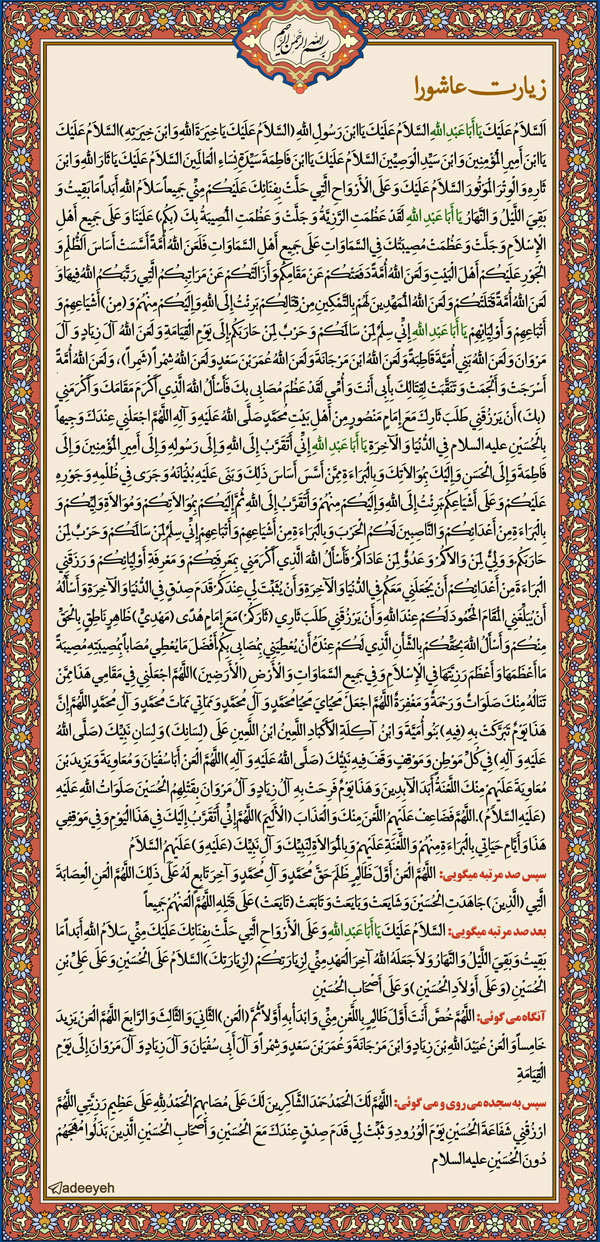 بسم الله الرحمن الرحیم
زیارت عاشورا
اَلسَّلاَمُ عَلَيْكَ يَا أَبَا عَبْدِ اللهِ السَّلاَمُ عَلَيْكَ يَا ابْنَ رَسُولِ اللهِ (السَّلاَمُ عَلَيْكَ يَا خِيَرَةَ اللهِ وَابْنَ خِيَرَتِهِ) السَّلاَمُ عَلَيْكَ
يَا ابْنَ أَمِيرِ الْمُؤْمِنِينَ وَابْنَ سَيِّدِ الْوَصِيِّينَ السَّلاَمُ عَلَيْكَ يَا ابْنَ فَاطِمَةَ سَيِّدَةِ نِسَاءِ الْعَالَمِينَ السَّلاَمُ عَلَيْكَ يَا ثَارَ اللهِ وَابْنَ
ثَارِهِ وَالْوِتْرَ الْمَوْتُورَ السَّلاَمُ عَلَيْكَ وَعَلَى الْأَرْوَاحِ الَّتِي حَلَّتْ بِفِنَائِكَ عَلَيْكُمْ مِنِّي جَمِيعاً سَلاَمُ اللهِ أَبَداً مَا بَقِيتُ وَ
بَقِيَ اللَّيْلُ وَالنَّهَارُ يَا أَبَا عَبْدِ اللهِ لَقَدْ عَظُمَتِ الرَّزِيَّةُ وَ جَلَّتْ وَ عَظُمَتِ الْمُصِيبَةُ بِكَ (بِكُمْ) عَلَيْنَا وَ عَلَى جَمِيعِ أَهْلِ
الْإِسْلاَمِ وَ جَلَّتْ وَ عَظُمَتْ مُصِيبَتُكَ فِي السَّمَاوَاتِ عَلَى جَمِيعِ أَهْلِ السَّمَاوَاتِ فَلَعَنَ اللهُ أُمَّةً أَسَّسَتْ أَسَاسَ الظُّلْمِ وَ
الْجَوْرِ عَلَيْكُمْ أَهْلَ الْبَيْتِ وَ لَعَنَ اللهُ أُمَّةً دَفَعَتْكُمْ عَنْ مَقَامِكُمْ وَ أَزَالَتْكُمْ عَنْ مَرَاتِبِكُمُ الَّتِي رَتَّبَكُمُ اللهُ فِيهَا وَ
لَعَنَ اللهُ أُمَّةً قَتَلَتْكُمْ وَ لَعَنَ اللهُ الْمُمَهِّدِينَ لَهُمْ بِالتَّمْكِينِ مِنْ قِتَالِكُمْ بَرِئْتُ إِلَى اللهِ وَ إِلَيْكُمْ مِنْهُمْ وَ (مِنْ) أَشْيَاعِهِمْ وَ
أَتْبَاعِهِمْ وَ أَوْلِيَائِهِمْ يَا أَبَا عَبْدِ اللهِ إِنِّي سِلْمٌ لِمَنْ سَالَمَكُمْ وَ حَرْبٌ لِمَنْ حَارَبَكُمْ إِلَى يَوْمِ الْقِيَامَةِ وَ لَعَنَ اللهُ آلَ زِيَادٍ وَ آلَ
مَرْوَانَ وَ لَعَنَ اللهُ بَنِي أُمَيَّةَ قَاطِبَةً وَ لَعَنَ اللهُ ابْنَ مَرْجَانَةَ وَ لَعَنَ اللهُ عُمَرَ بْنَ سَعْدٍ وَ لَعَنَ اللهُ شِمْراً (شَمِراً)، وَ لَعَنَ اللهُ أُمَّةً
أَسْرَجَتْ وَ أَلْجَمَتْ وَ تَنَقَّبَتْ لِقِتَالِكَ بِأَبِي أَنْتَ وَ أُمِّي لَقَدْ عَظُمَ مُصَابِي بِكَ فَأَسْأَلُ اللهَ الَّذِي أَكْرَمَ مَقَامَكَ وَ أَكْرَمَنِي
(بِكَ) أَنْ يَرْزُقَنِي طَلَبَ ثَارِكَ مَعَ إِمَامٍ مَنْصُورٍ مِنْ أَهْلِ بَيْتِ مُحَمَّدٍ صَلَّى اللهُ عَلَيْهِ وَ آلِهِ اللَّهُمَّ اجْعَلْنِي عِنْدَكَ وَجِيهاً
بِالْحُسَيْنِ علیه السلام فِي الدُّنْيَا وَ الْآخِرَةِ يَا أَبَا عَبْدِ اللهِ إِنِّي أَتَقَرَّبُ إِلَى اللهِ وَ إِلَى رَسُولِهِ وَ إِلَى أَمِيرِ الْمُؤْمِنِينَ وَ إِلَى
فَاطِمَةَ وَ إِلَى الْحَسَنِ وَ إِلَيْكَ بِمُوَالاَتِكَ وَ بِالْبَرَاءَةِ مِمَّنْ أَسَّسَ أَسَاسَ ذَلِكَ وَ بَنَى عَلَيْهِ بُنْيَانَهُ وَ جَرَى فِي ظُلْمِهِ وَ جَوْرِهِ
عَلَيْكُمْ وَ عَلَى أَشْيَاعِكُمْ بَرِئْتُ إِلَى اللهِ وَ إِلَيْكُمْ مِنْهُمْ وَ أَتَقَرَّبُ إِلَى اللهِ ثُمَّ إِلَيْكُمْ بِمُوَالاَتِكُمْ وَ مُوَالاَةِ وَلِيِّكُمْ وَ
بِالْبَرَاءَةِ مِنْ أَعْدَائِكُمْ وَ النَّاصِبِينَ لَكُمُ الْحَرْبَ وَ بِالْبَرَاءَةِ مِنْ أَشْيَاعِهِمْ وَ أَتْبَاعِهِمْ إِنِّي سِلْمٌ لِمَنْ سَالَمَكُمْ وَ حَرْبٌ لِمَنْ
حَارَبَكُمْ، وَ وَلِيٌّ لِمَنْ وَالاَكُمْ وَ عَدُوٌّ لِمَنْ عَادَاكُمْ فَأَسْأَلُ اللهَ الَّذِي أَكْرَمَنِي بِمَعْرِفَتِكُمْ وَ مَعْرِفَةِ أَوْلِيَائِكُمْ وَ رَزَقَنِي
الْبَرَاءَةَ مِنْ أَعْدَائِكُمْ أَنْ يَجْعَلَنِي مَعَكُمْ فِي الدُّنْيَا وَ الْآخِرَةِ وَ أَنْ يُثَبِّتَ لِي عِنْدَكُمْ قَدَمَ صِدْقٍ فِي الدُّنْيَا وَ الْآخِرَةِ وَ أَسْأَلُهُ
أَنْ يُبَلِّغَنِي الْمَقَامَ الْمَحْمُودَ لَكُمْ عِنْدَ اللهِ وَ أَنْ يَرْزُقَنِي طَلَبَ ثَارِي (ثَارَكُمْ) مَعَ إِمَامٍ هُدًى (مَهْدِيٍّ) ظَاهِرٍ نَاطِقٍ بِالْحَقِّ
مِنْكُمْ وَ أَسْأَلُ اللهَ بِحَقِّكُمْ وَ بِالشَّأْنِ الَّذِي لَكُمْ عِنْدَهُ أَنْ يُعْطِيَنِي بِمُصَابِي بِكُمْ أَفْضَلَ مَا يُعْطِي مُصَاباً بِمُصِيبَتِهِ مُصِيبَةً
مَا أَعْظَمَهَا وَ أَعْظَمَ رَزِيَّتَهَا فِي الْإِسْلاَمِ وَ فِي جَمِيعِ السَّمَاوَاتِ وَ الْأَرْضِ (الْأَرَضِينَ) اللَّهُمَّ اجْعَلْنِي فِي مَقَامِي هَذَا مِمَّنْ
تَنَالُهُ مِنْكَ صَلَوَاتٌ وَ رَحْمَةٌ وَ مَغْفِرَةٌ اللَّهُمَّ اجْعَلْ مَحْيَايَ مَحْيَا مُحَمَّدٍ وَ آلِ مُحَمَّدٍ وَ مَمَاتِي مَمَاتَ مُحَمَّدٍ وَ آلِ مُحَمَّدٍ اللَّهُمَّ إِنَّ
هَذَا يَوْمٌ تَبَرَّكَتْ بِهِ (فِيهِ) بَنُو أُمَيَّةَ وَ ابْنُ آكِلَةِ الْأَكْبَادِ اللَّعِينُ ابْنُ اللَّعِينِ عَلَى (لِسَانِكَ) وَ لِسَانِ نَبِيِّكَ (صَلَّى اللهُ
عَلَيْهِ وَ آلِهِ) فِي كُلِّ مَوْطِنٍ وَ مَوْقِفٍ وَقَفَ فِيهِ نَبِيُّكَ (صَلَّى اللهُ عَلَيْهِ وَ آلِهِ) اللَّهُمَّ الْعَنْ أَبَا سُفْيَانَ وَ مُعَاوِيَةَ وَ يَزِيدَ بْنَ
مُعَاوِيَةَ عَلَيْهِمْ مِنْكَ اللَّعْنَةُ أَبَدَ الْآبِدِينَ وَ هَذَا يَوْمٌ فَرِحَتْ بِهِ آلُ زِيَادٍ وَ آلُ مَرْوَانَ بِقَتْلِهِمُ الْحُسَيْنَ صَلَوَاتُ اللهِ عَلَيْهِ
(عَلَيْهِ السَّلاَمُ)، اللَّهُمَّ فَضَاعِفْ عَلَيْهِمُ اللَّعْنَ مِنْكَ وَ الْعَذَابَ (الْأَلِيمَ) اللَّهُمَّ إِنِّي أَتَقَرَّبُ إِلَيْكَ فِي هَذَا الْيَوْمِ وَ فِي مَوْقِفِي
هَذَا وَ أَيَّامِ حَيَاتِي بِالْبَرَاءَةِ مِنْهُمْ وَ اللَّعْنَةِ عَلَيْهِمْ وَ بِالْمُوَالاَةِ لِنَبِيِّكَ وَ آلِ نَبِيِّكَ (عَلَيْهِ وَ) عَلَيْهِمُ السَّلاَمُ
سپس صد مرتبه میگویی: اللَّهُمَّ الْعَنْ أَوَّلَ ظَالِمٍ ظَلَمَ حَقَّ مُحَمَّدٍ وَ آلِ مُحَمَّدٍ وَ آخِرَ تَابِعٍ لَهُ عَلَى ذَلِكَ اللَّهُمَّ الْعَنِ الْعِصَابَةَ
الَّتِي (الَّذِينَ) جَاهَدَتِ الْحُسَيْنَ وَ شَايَعَتْ وَ بَايَعَتْ وَ تَابَعَتْ (تَايَعَتْ) عَلَى قَتْلِهِ اللَّهُمَّ الْعَنْهُمْ جَمِيعاً
بعد صد مرتبه میگویی: السَّلاَمُ عَلَيْكَ يَا أَبَا عَبْدِ اللهِ وَ عَلَى الْأَرْوَاحِ الَّتِي حَلَّتْ بِفِنَائِكَ عَلَيْكَ مِنِّي سَلاَمُ اللهِ أَبَداً مَا
بَقِيتُ وَ بَقِيَ اللَّيْلُ وَ النَّهَارُ وَ لاَ جَعَلَهُ اللهُ آخِرَ الْعَهْدِ مِنِّي لِزِيَارَتِكُمْ (لِزِيَارَتِكَ) السَّلاَمُ عَلَى الْحُسَيْنِ وَ عَلَى عَلِيِّ بْنِ
الْحُسَيْنِ (وَ عَلَى أَوْلاَدِ الْحُسَيْنِ) وَ عَلَى أَصْحَابِ الْحُسَيْنِ
آنگاه می گوئی: اللَّهُمَّ خُصَّ أَنْتَ أَوَّلَ ظَالِمٍ بِاللَّعْنِ مِنِّي وَ ابْدَأْ بِهِ أَوَّلاً ثُمَّ (الْعَنِ) الثَّانِيَ وَ الثَّالِثَ وَ الرَّابِعَ اللَّهُمَّ الْعَنْ يَزِيدَ
خَامِساً وَ الْعَنْ عُبَيْدَ اللهِ بْنَ زِيَادٍ وَ ابْنَ مَرْجَانَةَ وَ عُمَرَ بْنَ سَعْدٍ وَ شِمْراً وَ آلَ أَبِي سُفْيَانَ وَ آلَ زِيَادٍ وَ آلَ مَرْوَانَ إِلَى يَوْمِ
الْقِيَامَةِ
سپس به سجده می روی و می گوئی: اللَّهُمَّ لَكَ الْحَمْدُ حَمْدَ الشَّاكِرِينَ لَكَ عَلَى مُصَابِهِمُ الْحَمْدُ لِلَّهِ عَلَى عَظِيمِ رَزِيَّتِي اللَّهُمَّ
ارْزُقْنِي شَفَاعَةَ الْحُسَيْنِ يَوْمَ الْوُرُودِ وَ ثَبِّتْ لِي قَدَمَ صِدْقٍ عِنْدَكَ مَعَ الْحُسَيْنِ وَ أَصْحَابِ الْحُسَيْنِ الَّذِينَ بَذَلُوا مُهَجَهُمْ
دُونَ الْحُسَيْنِ علیه السلام
adeeyeh